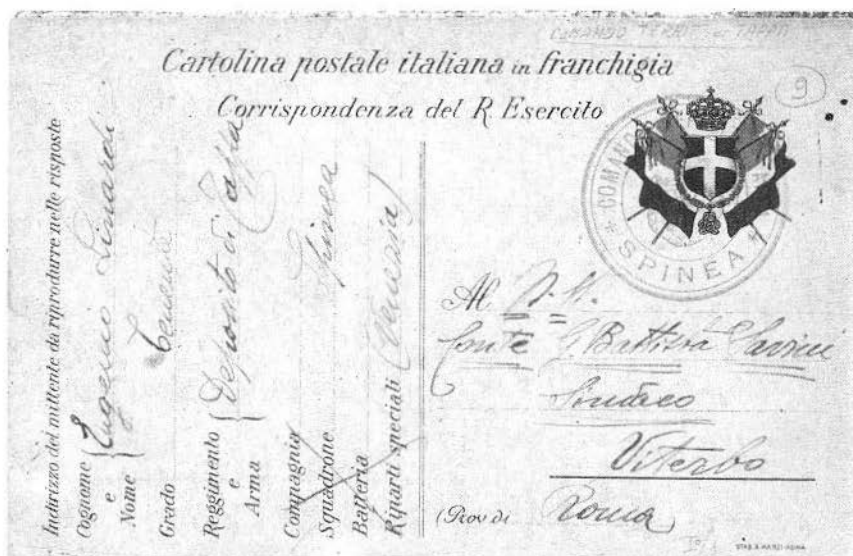 COMANDO TERR. di TAPPA
9
Cartolina postale italiana in franchigia
Corrispondenza del R. Esercito
COMANDO
* SPINEA *
Indirizzo del mittente da riprodurre nelle risposte
Cognome e Nome { Eugenio Linardi
Grado Tenente
Reggimento e Arma { Deposito di Tappa
Compagnia
Squadrone Spinea
Batteria
Riparti speciali (Venezia)
Al N. H.
Conte G. Battista
Sindaco
Viterbo
(Prov di Roma)